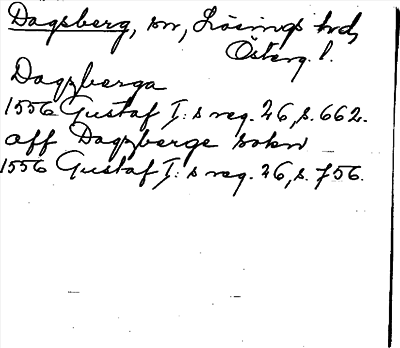 Dagsberg, sn, Lösings hrd,
Österg. l.
Dagzberga
1556 Gustaf I:s reg. 26, s. 662.
aff Dagzberge sokn
1556 Gustaf I:s reg. 26, s. 756.